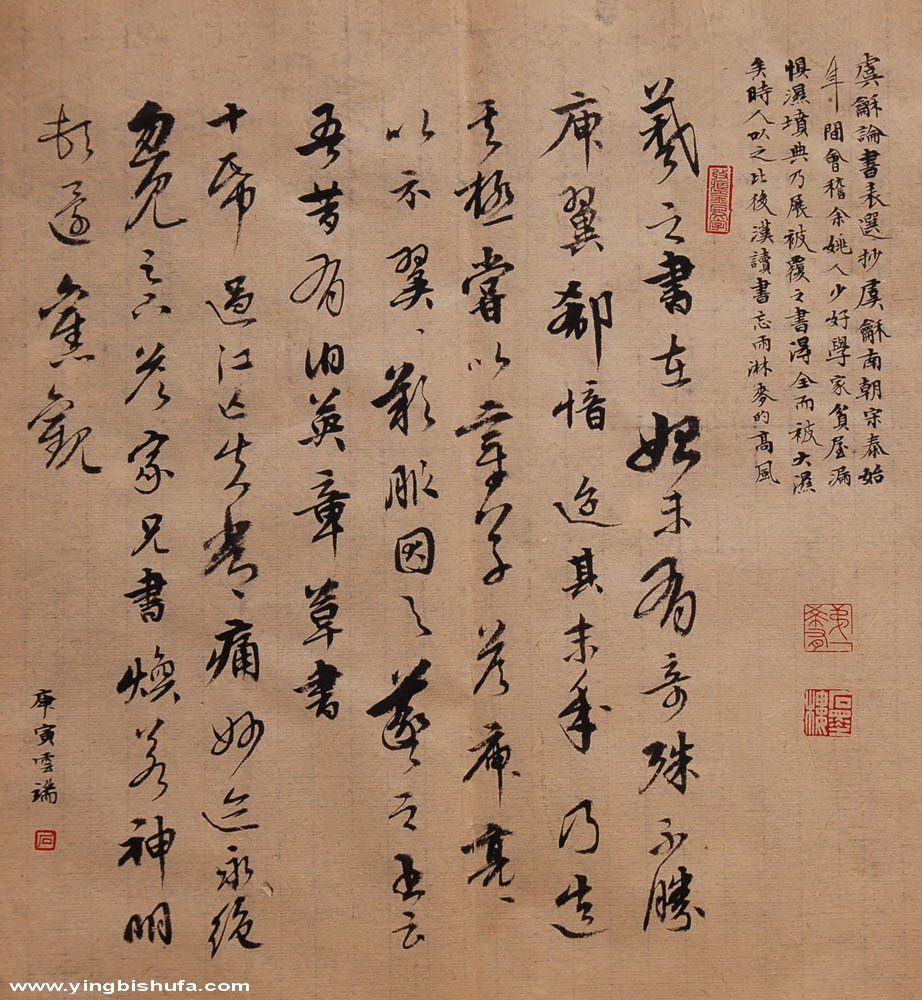 虞龢論書表選抄虞龢南朝宋泰始
年間會稽余姚人少好學家貧屋漏
惧濕墳典乃展被覆之書得全而被大濕
矣時人以之比後漢讀書忘雨淋麥的高風
羲之書在始未有奇殊不勝
庾翼郗愔迨其末年乃造
其極嘗以章草答庾亮亮
以示翼翼歎服因與羲之書云
吾昔有伯英章草書
十紙過江亡失常常痛妙迹永絕
忽見足下答家兄書煥若神明
頓還舊觀
庚寅雲端
石
www.yingbishufa.com